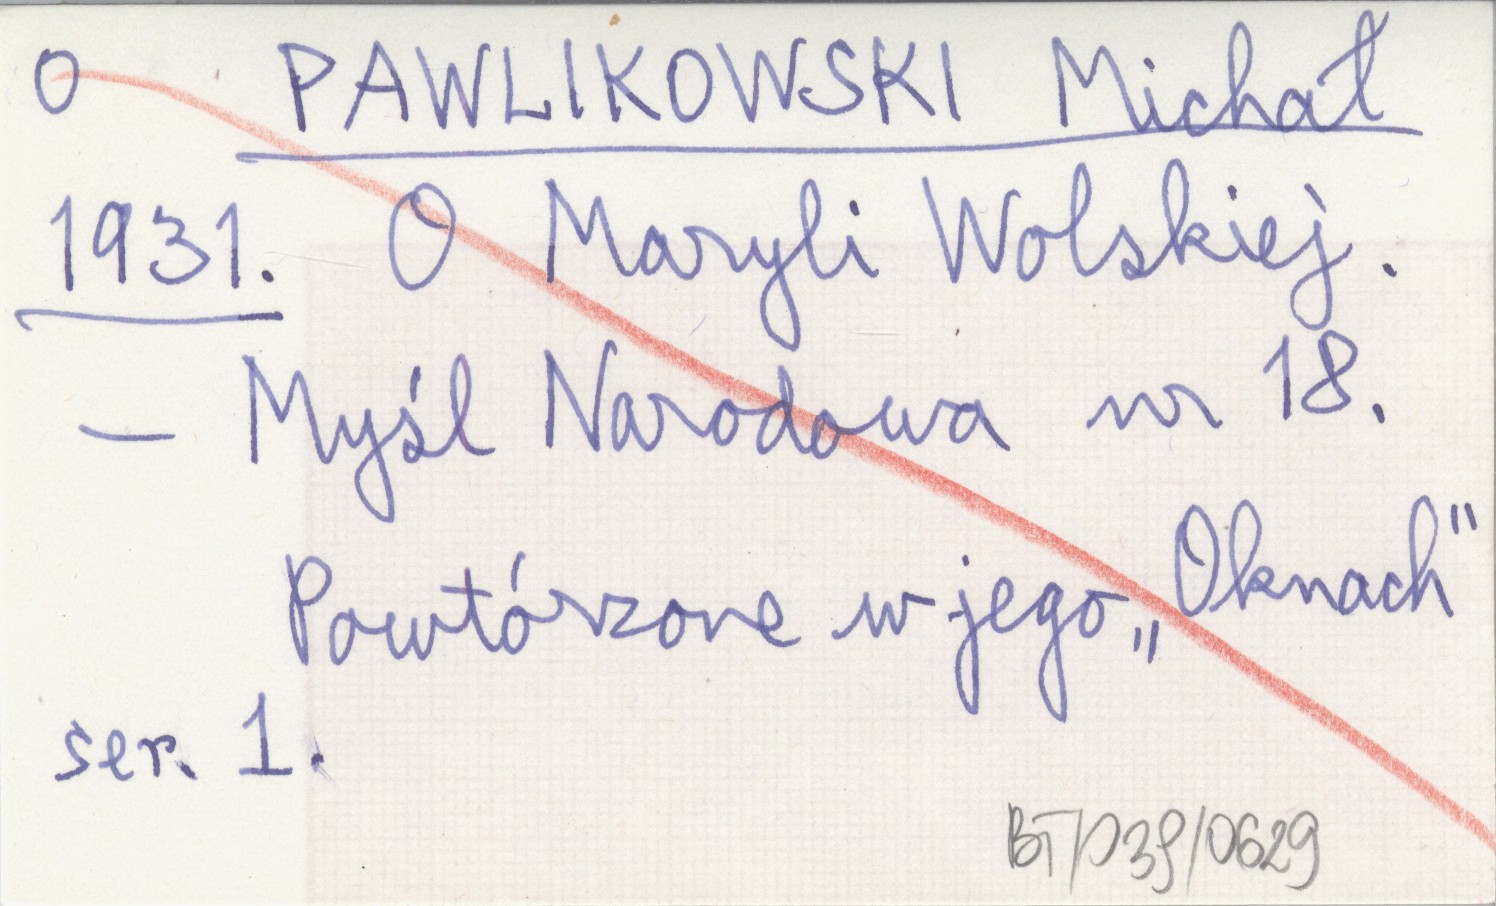 O PAWLIKOWSKI Michał
1931. O Maryli Wolskiej.
— Myśl Narodowa nr 18.
Powtórzone w jego „Oknach"
ser. 1.
BT/D39/0629